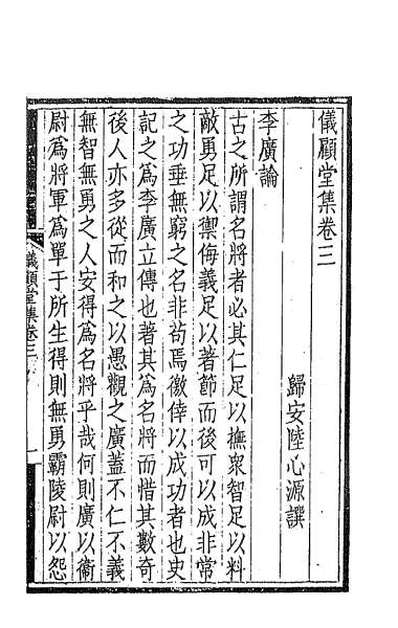 儀顧堂集卷三
歸安陸心源譔
李廣論
古之所謂名將者必其仁足以撫衆智足以料
敵勇足以禦侮義足以著節而後可以成非常
之功垂無窮之名非茍焉徼倖以成功者也史
記之為李廣立傳也著其為名將而惜其數奇
後人亦多從而和之以愚觀之廣蓋不仁不義
無智無勇之人安得為名將乎哉何則廣以衞
尉為將軍為單于所生得則無勇霸陵尉以怨
儀顧堂集卷三
一